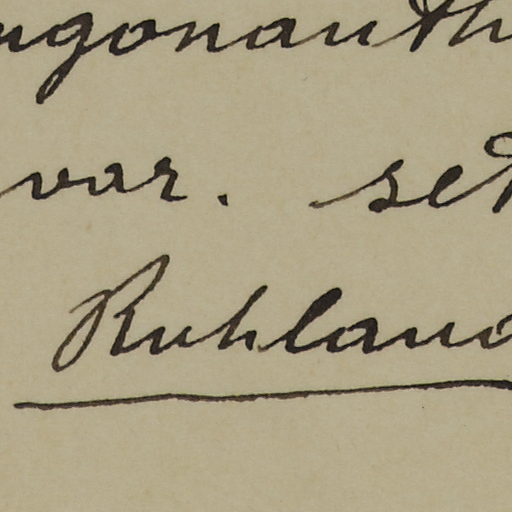 ugonauth
var. set
Ruhland